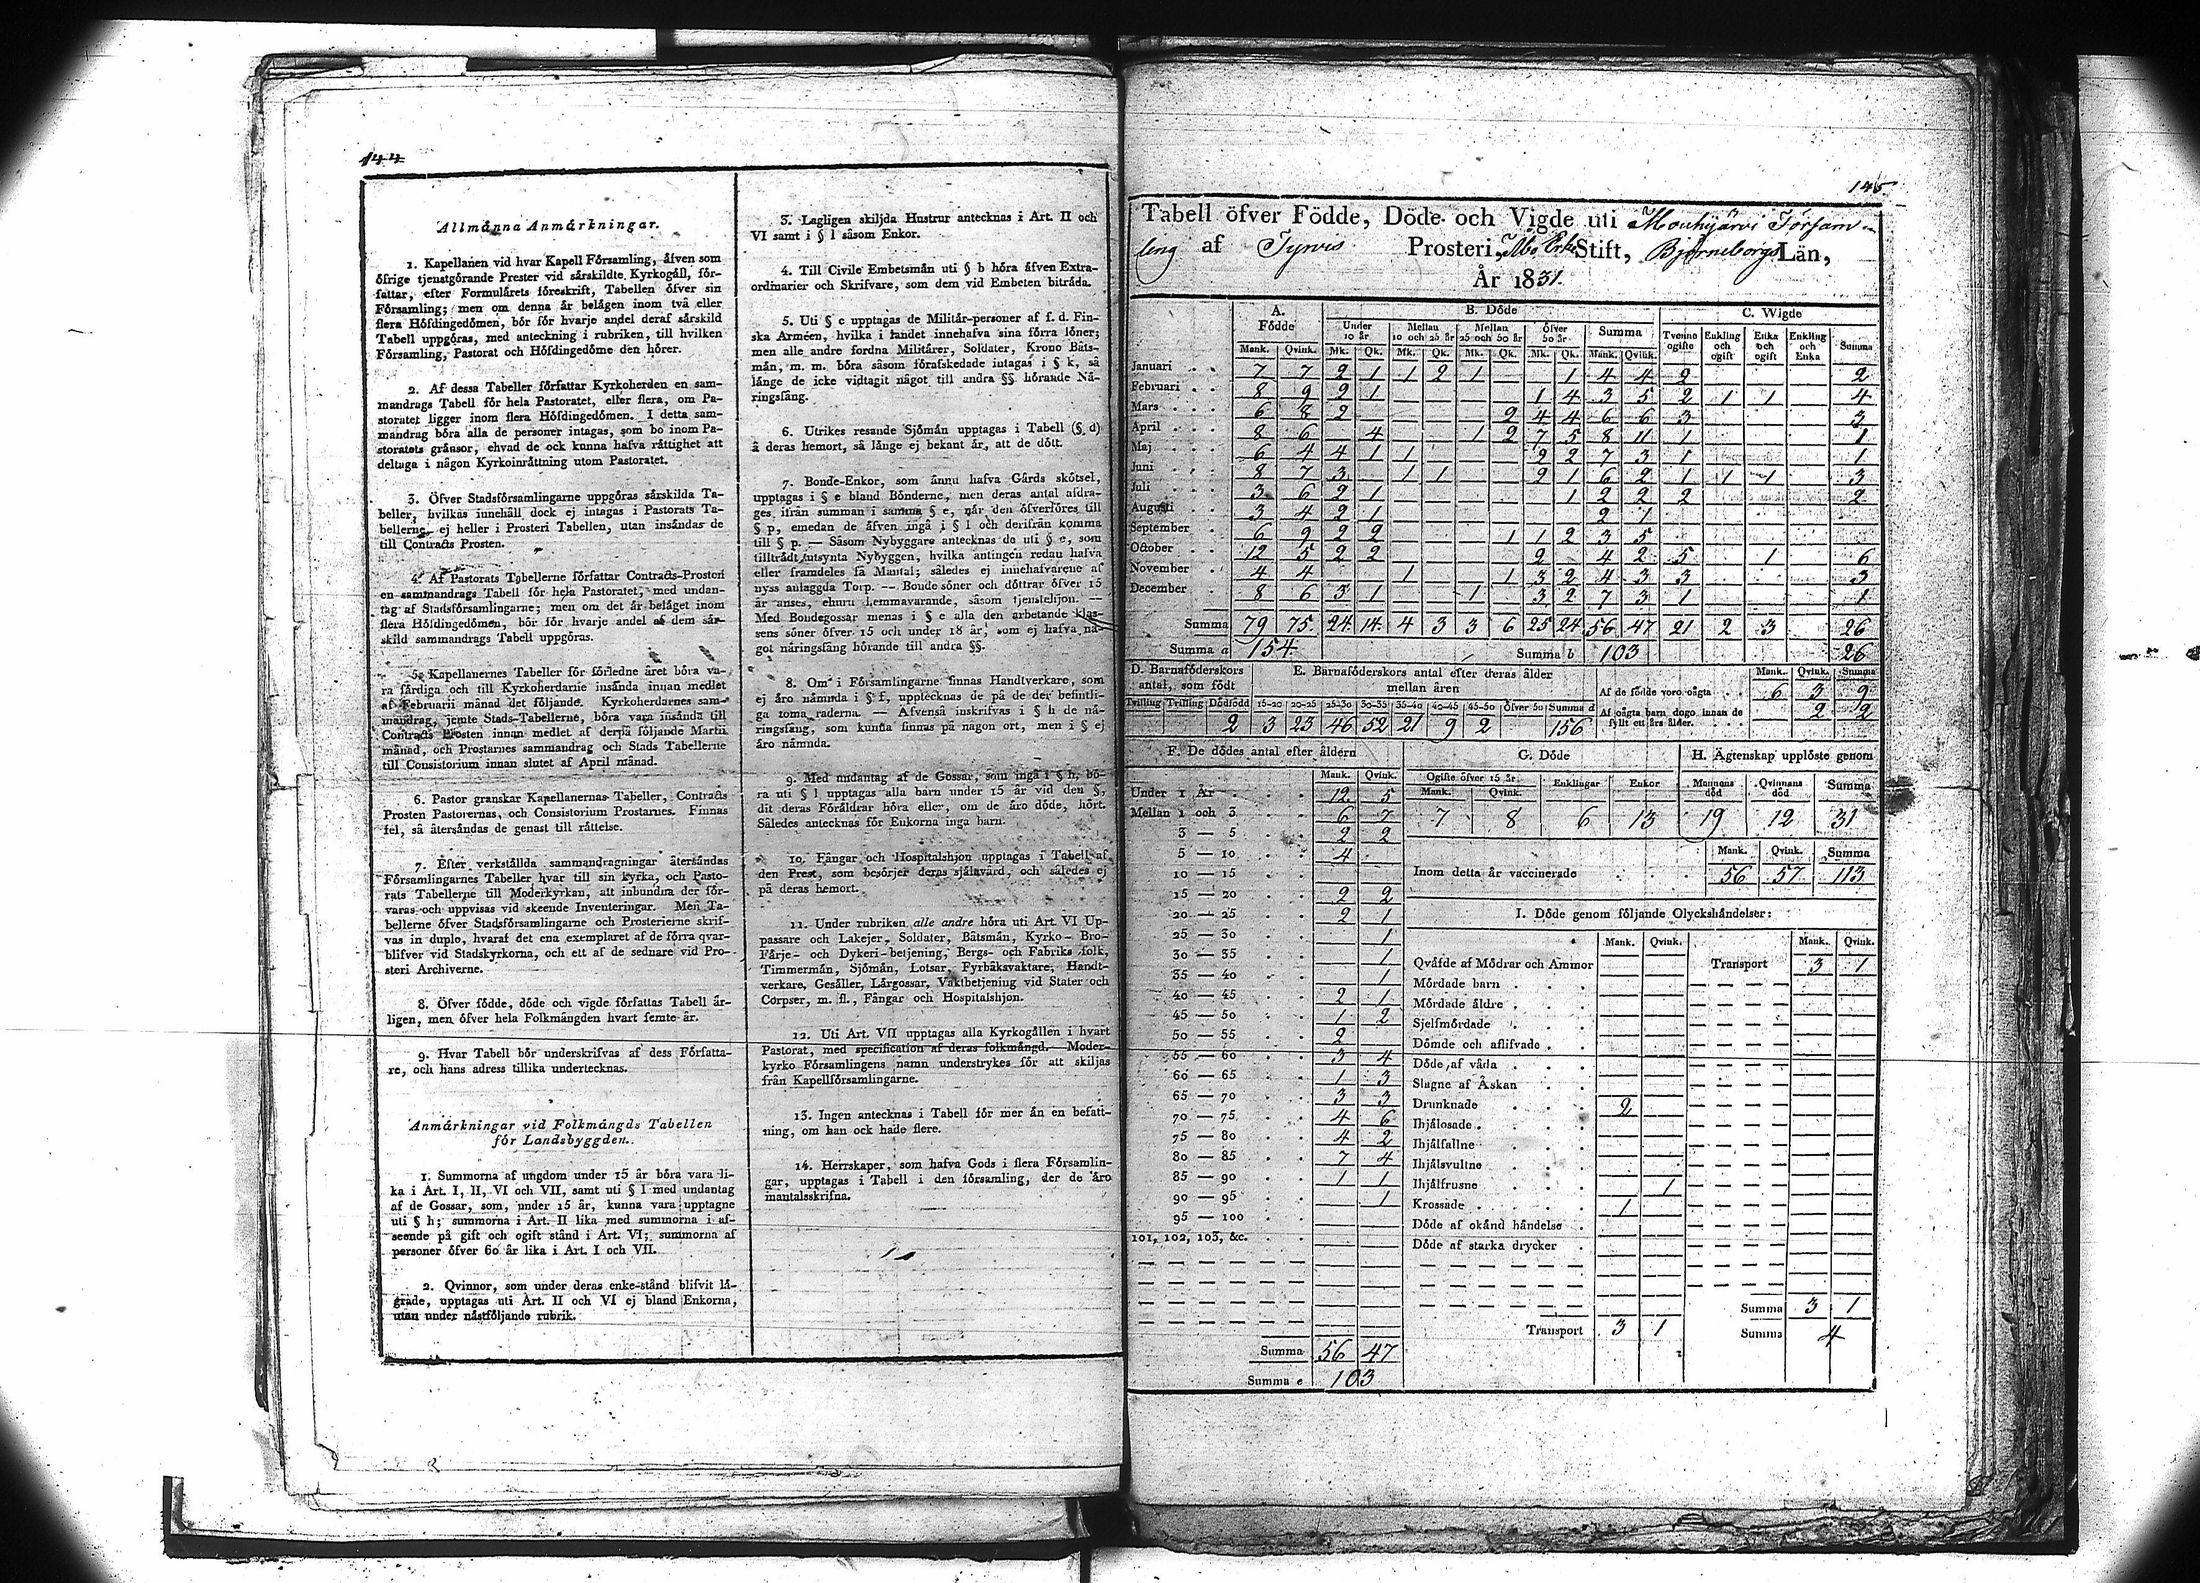 144
Allmänna Anmärkningar.
1. Kapellanen vid hvar Kapell Församling, äfven som
öfrige tjenstgörande Prester vid särskildte Kyrkogäll, för-
fattar, efter Formulärets föreskrift, Tabellen öfver sin
Församling; men om denna är belägen inom två eller
flera Höfdingedömen, bör för hvarje andel deraf särskild
Tabell uppgöras, med anteckning i rubriken, till hvilken
Församling, Pastorat och Höfdingedöme den hörer.
2. Af dessa Tabeller författar Kyrkoherden en sam-
mandrags Tabell för hela Pastoratet, eller flera, om Pa-
storatet ligger inom flera Höfdingedömen. I detta sam-
mandrag böra alla de personer intagas, som bo inom Pa-
storatets gränsor, ehvad de ock kunna hafva rättighet att
deltaga i någon Kyrkoinrättning utom Pastoratet.
3. Öfver Stadsförsamlingarne uppgöras särskilda Ta-
beller, hvilkas innehåll dock ej intages i Pastorats Ta-
bellerne, ej heller i Prosteri Tabellen, utan insändas de
till Contracts Prosten.
4. Af Pastorats Tabellerne författar Contracts-Prosten
en sammandrags Tabell för hela Pastoratet, med undan-
tag af Stadsförsamlingarne; men om det är beläget inom
flera Höfdingedömen, bör för hvarje andel af dem sär-
skild sammandrags Tabell uppgöras.
5. Kapellanernes Tabeller för förledne året böra va-
ra färdiga och till Kyrkoherdarne insända innan medlet
af Februarii månad det följande. Kyrkoherdarnes sam-
mandrag, jemte Stads-Tabellerne, böra vara insända till
Contracts Prosten innan medlet af derpå följande Martii
månad, och Prostarnes sammandrag och Stads Tabellerne
till Consistorium innan slutet af April månad.
6. Pastor granskar Kapellanernas Tabeller, Contracts
Prosten Pastorernas, och Consistorium Prostarnes. Finnas
fel, så återsändas de genast till rättelse.
7. Efter verkställda sammandragningar återsändas
Församlingarnes Tabeller hvar till sin kyrka, och Pasto-
rats Tabellerne till Moderkyrkan, att inbundna der för-
varas och uppvisas vid skeende Inventeringar. Men Ta-
bellerne öfver Stadsförsamlingarne och Prosterierne skrif-
vas in duplo, hvaraf det ena exemplaret af de förra qvar-
blifver vid Stadskyrkorna, och ett af de sednare vid Pro-
steri Archiverne.
8. Öfver födde, döde och vigde författas Tabell år-
ligen, men öfver hela Folkmängden hvart femte år.
9. Hvar Tabell bör underskrifvas af dess Författa-
re, och hans adress tillika undertecknas.
Anmärkningar vid Folkmängds Tabellen
för Landsbyggden.
1. Summorna af ungdom under 15 år böra vara li-
ka i Art. I, II, VI och VII, samt uti § I med undantag
af de Gossar, som, under 15 år, kunna vara upptagne
uti § h; summorna i Art. II lika med summorna i af-
seende på gift och ogift stånd i Art. VI; summorna af
personer öfver 60 år lika i Art. I och VII.
2. Qvinnor, som under deras enke-stånd blifvit lä-
grade, upptagas uti Art. II och VI ej bland Enkorna,
utan under nästföljande rubrik.
3. Lagligen skiljda Hustrur antecknas i Art. II och
VI samt i § l såsom Enkor.
4. Till Civile Embetsmän uti § b höra äfven Extra-
ordinarier och Skrifvare, som dem vid Embeten biträda.
5. Uti § c upptagas de Militär-personer af f. d. Fin-
ska Arméen, hvilka i landet innehafva sina förra löner;
men alle andre fordna Militärer, Soldater, Krono Båts-
män, m. m. böra såsom förafskedade intagas i § k, så
länge de icke vidtagit något till andra §§ hörande Nä-
ringsfång.
6. Utrikes resande Sjömän upptagas i Tabell (§ d)
å deras hemort, så länge ej bekant är, att de dött.
7. Bonde-Enkor, som ännu hafva Gårds skötsel,
upptagas i § e bland Bönderne, men deras antal afdra-
ges ifrån summan i samma § e, när den öfverföres till
§ p, emedan de äfven ingå i § l och derifrån komma
till § p. — Såsom Nybyggare antecknas de uti § e, som
tillträdt utsynta Nybyggen, hvilka antingen redan hafva
eller framdeles få Mantal; således ej innehafvarene af
nyss anlaggda Torp. — Bonde söner och döttrar öfver 15
år anses, ehuru hemmavarande, såsom tjenstehjon. —
Med Bondegossar menas i § e alla den arbetande klas-
sens söner öfver 15 och under 18 år, som ej hafva nå-
got näringsfång hörande till andra §§.
8. Om i Församlingarne finnas Handtverkare, som
ej äro nämnda i § f, upptecknas de på de der befintli-
ga toma raderna. — Äfvenså inskrifvas i § h de nä-
ringsfång, som kunna finnas på någon ort, men i § ej
äro nämnda.
9. Med undantag af de Gossar, som ingå i § h, bö-
ra uti § l upptagas alla barn under 15 år vid den §,
dit deras Föräldrar höra eller, om de äro döde, hört.
Således antecknas för Enkorna inga barn.
10. Fångar och Hospitalshjon upptagas i Tabell af
den Prest, som besörjer deras själavård, och således ej
på deras hemort.
11. Under rubriken alle andre höra uti Art. VI Up-
passare och Lakejer, Soldater, Båtsmän, Kyrko- Bro-
Färje- och Dykeri-betjening, Bergs- och Fabriks folk,
Timmermän, Sjömän, Lotsar, Fyrbåksvaktare, Handt-
verkare, Gesäller, Lärgossar, Vaktbetjening vid Stater och
Corpser, m. fl., Fångar och Hospitalshjon.
12. Uti Art. VII upptagas alla Kyrkogällen i hvart
Pastorat, med specification af deras folkmängd. Moder-
kyrko Församlingens namn understrykes för att skiljas
från Kapellförsamlingarne.
13. Ingen antecknas i Tabell för mer än en befatt-
ning, om han ock hade flere.
14. Herrskaper, som hafva Gods i flera Församlin-
gar, upptagas i Tabell i den församling, der de äro
mantalsskrifna.
145
Tabell öfver Födde, Döde och Vigde uti Mouhijärvi Församling
af Tyrvis Prosteri, Åbo Erke Stift, Björneborgs Län,
År 1831.
A. Födde B. Döde C. Wigde
Under 10 år Mellan 10 och 25 år Mellan 25 och 50 år Öfver 50 år Summa Tvenne ogifte Enkling och ogift Enka och ogift Enkling och Enka Summa
Mank. Qvink. Mk. Qk. Mk. Qk. Mk. Qk. Mk. Qk. Mank. Qvink.
Januari 7 7 2 1 1 2 1 1 4 4 2 2
Februari 8 9 2 1 1 4 3 5 2 1 1 4
Mars 6 8 2 2 4 4 6 6 3 3
April 8 6 4 1 2 7 5 8 11 1 1
Maj 6 4 4 1 1 2 2 7 3 1 1
Juni 8 7 3 1 1 2 1 6 2 1 1 1 3
Juli 3 6 2 1 1 2 2 2 2
Augusti 3 4 2 1 2 1
September 6 9 2 2 1 1 2 3 5
October 12 5 2 2 2 4 2 5 1 6
November 4 4 1 1 3 2 4 3 3 3
December 8 6 3 1 1 3 2 7 3 1 1
Summa 79 75 24 14 4 3 3 6 25 24 56 47 21 2 3 26
Summa a 154 Summa b 103 26
D. Barnaföderskors antal, som födt
E. Barnaföderskors antal efter deras ålder mellan åren
Mank. Qvink. Summa
Af de födde voro oägta 6 3 9
Af oägta barn dogo innan de fyllt ett års ålder. 2 2
Tvilling Trilling Dödfödd 15-20 20-25 25-30 30-35 35-40 40-45 45-50 Öfver 50 Summa d
2 3 23 46 52 21 9 2 156
F. De dödes antal efter åldern
Mank. Qvink.
Under 1 År 12 5
Mellan 1 och 3 6 7
3 — 5 2 2
5 — 10 4
10 — 15
15 — 20 2 2
20 — 25 2 1
25 — 30 1
30 — 35 1
35 — 40 1
40 — 45 2 1
45 — 50 1 2
50 — 55 2
55 — 60 3 4
60 — 65 1 3
65 — 70 3 3
70 — 75 4 6
75 — 80 4 2
80 — 85 7 4
85 — 90 1 1
90 — 95 1
95 — 100
101, 102, 103, &c.
Summa 56 47
Summa e 103
G. Döde
Ogifte öfver 15 år Enklingar Enkor
Mank. Qvink.
7 8 6 13
H. Ägtenskap upplöste genom
Mannens död Qvinnans död Summa
19 12 31
Mank. Qvink. Summa
Inom detta år vaccinerade 56 57 113
I. Döde genom följande Olyckshändelser:
Mank. Qvink. Mank. Qvink.
Qväfde af Mödrar och Ammor Transport 3 1
Mördade barn
Mördade äldre
Sjelfmördade
Dömde och aflifvade
Döde af våda
Slagne af Åskan
Drunknade 2
Ihjälosade
Ihjälfallne
Ihjälsvultne
Ihjälfrusne 1
Krossade 1
Döde af okänd händelse
Döde af starka drycker
Summa 3 1
Transport 3 1 Summa 4